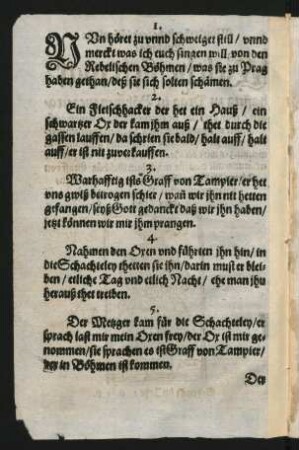 1.
NUn höret zu vnnd schweiget still / vnnd
merckt was ich euch singen will, von den
Rebelischen Böhmen / was sie zu Prag
haben gethan/deß sie sich solten schämen.
2.
Ein Fleischhacker der het ein Hauß / ein
schwartzer Ox der kam jhm auß / thet durch die
gassen lauffen / da schrien sie bald / halt auff / halt
auff / er ist nit zuverkauffen.
3.
Warhafftig ists Graff von Tampier / er het
vns gwiß betrogen schier / wañ wir jhn nit hetten
gefangen / seyß Gott gedanckt daß wir jhn haben /
jetzt können wir mit jhm prangen.
4.
Nahmen den Oxen vnd führten jhn hin / in
die Schachteley theten sie jhn / darin must er blei-
ben / etliche Tag vnd etlich Nacht / ehe man jhn
herauß thet treiben.
5.
Der Metzger kam für die Schachteley / er
sprach last mir mein Oxen frey / der Ox ist mir ge-
nommen / sie sprachen es ist Graff von Tampier /
der in Böhmen ist kommen.
Der